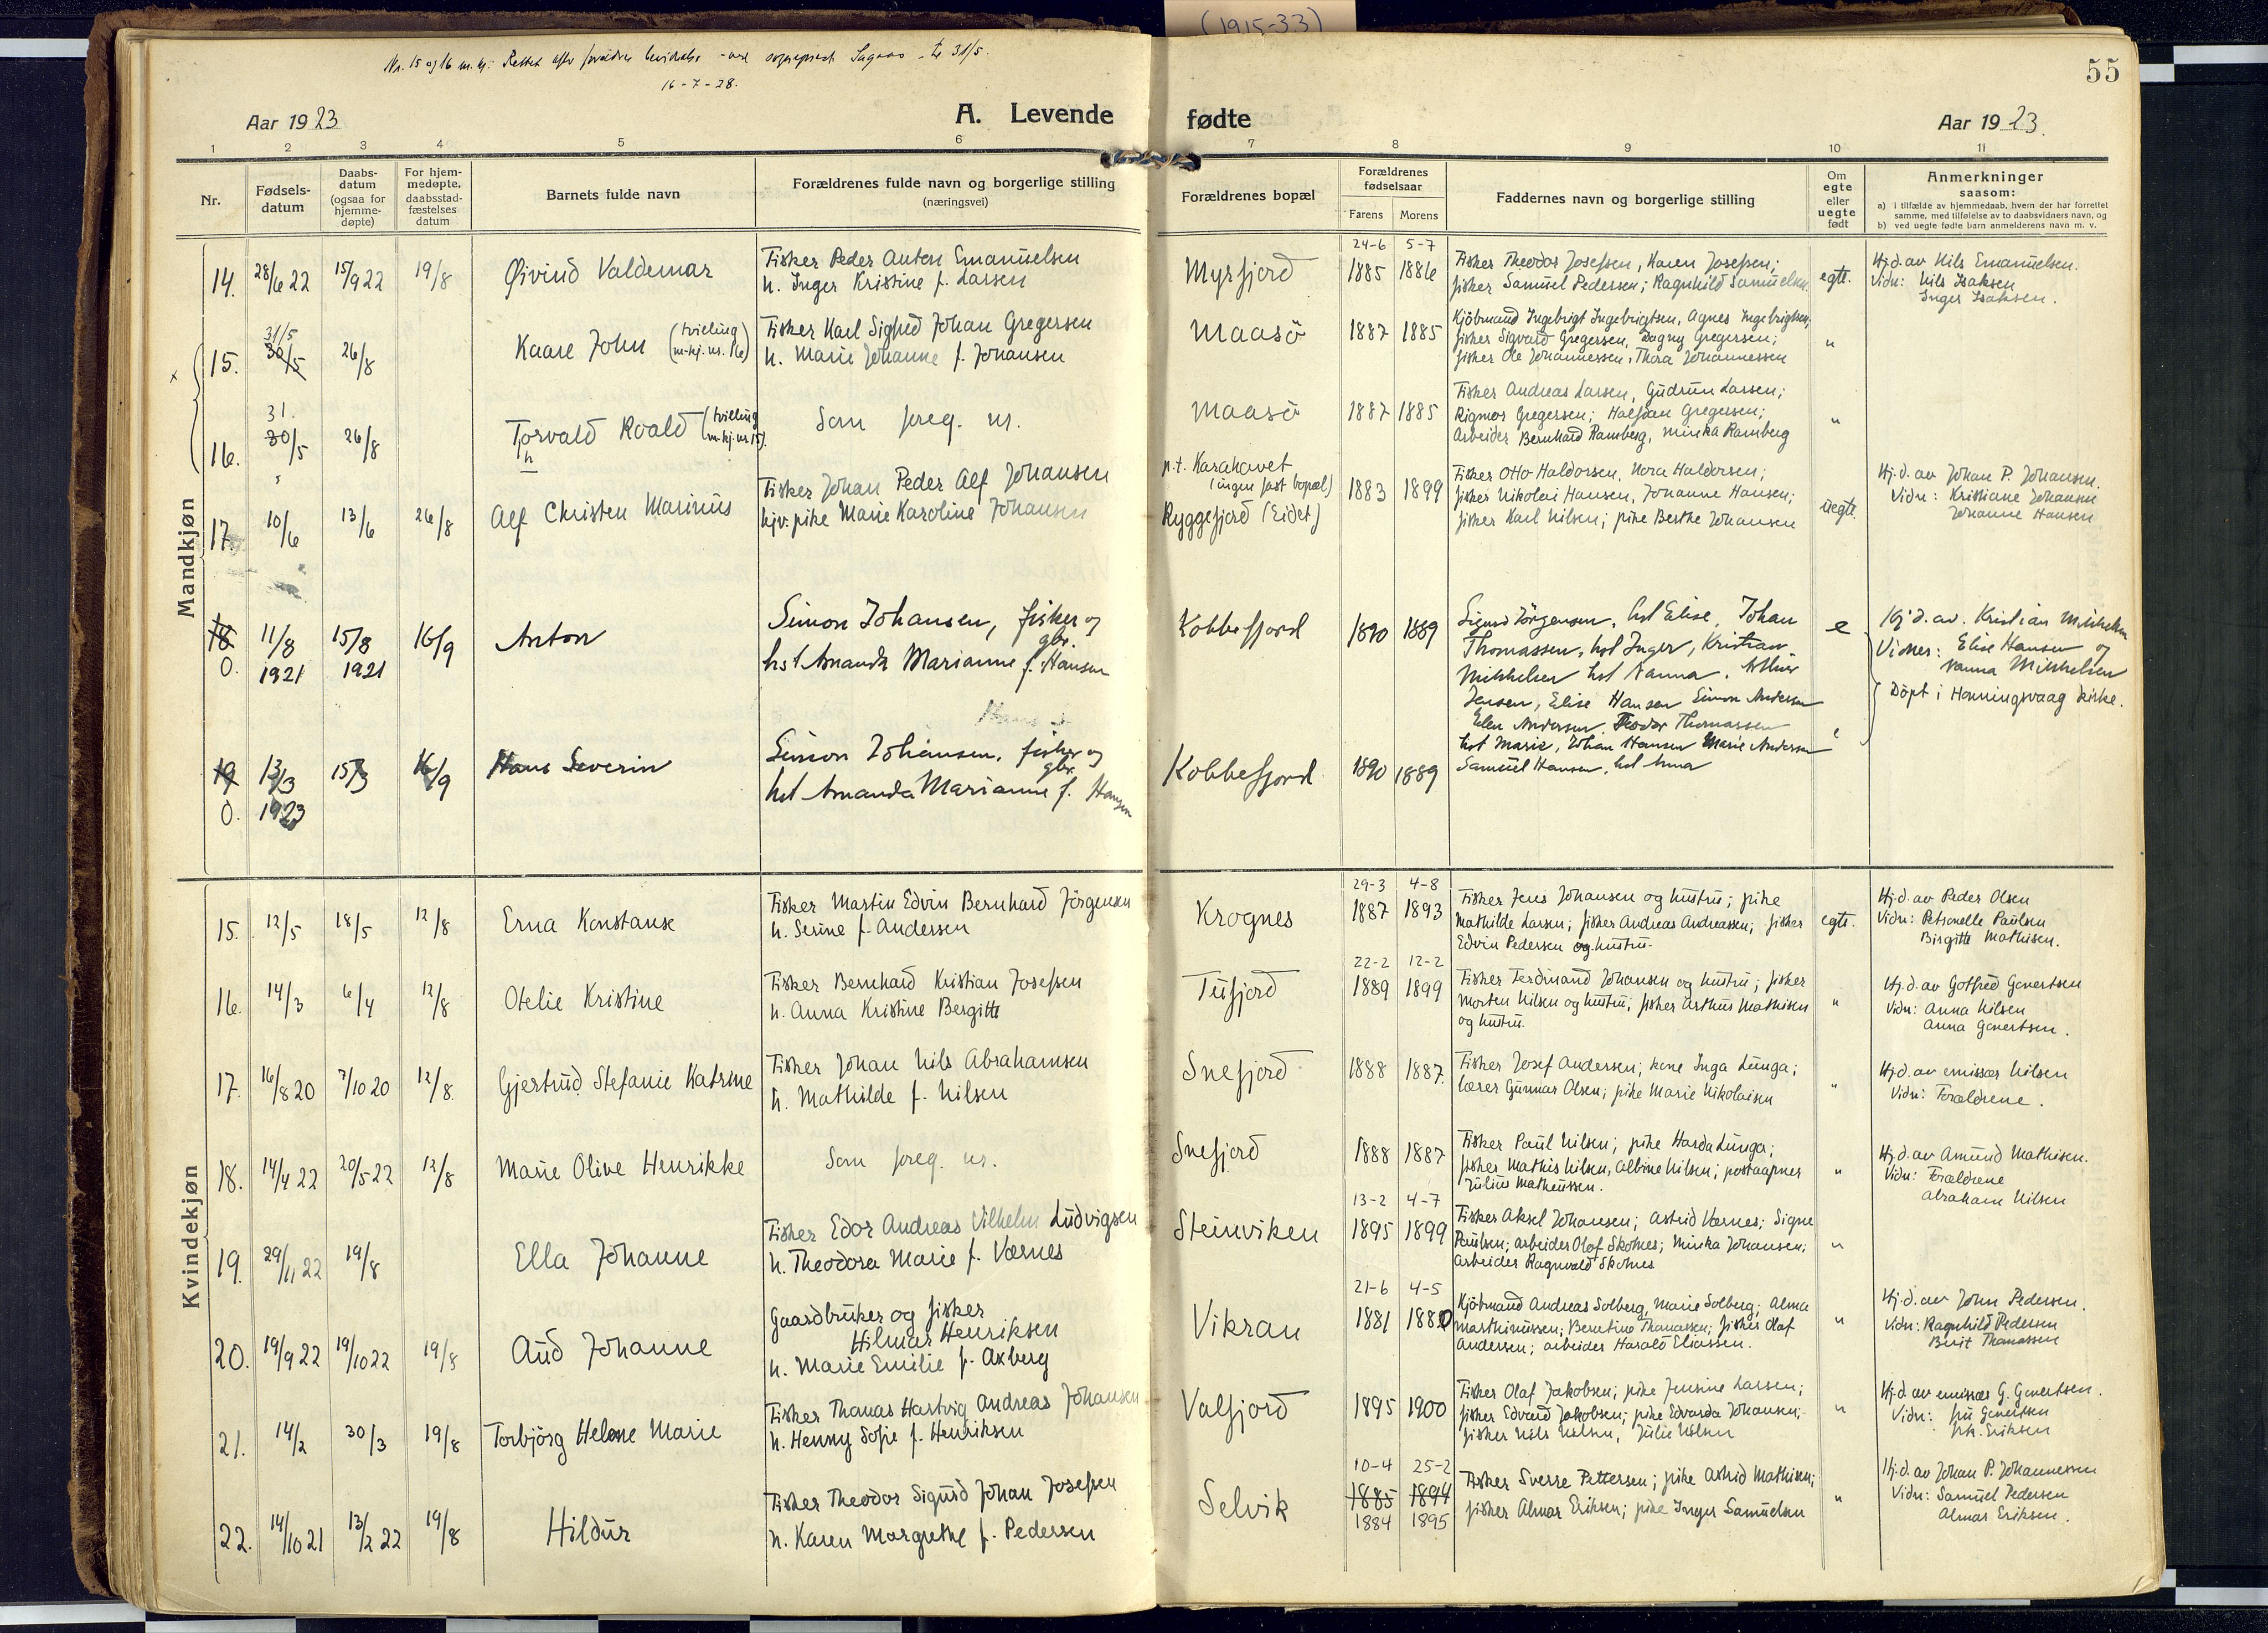 (1915-33)
Nr. 15 og 16 m.kj. Rettet efter foreldres til 31/5.
16-7-28.
55
Aar 1923
A. Levende fødte
Aar 1923.
1 2 3 4 5 6 7 8 9 10 11
Nr.
Fødsels-
datum
Daabs-
datum
(ogsaa for
hjemme-
døpte)
For hjem-
medøpte,
daabsstad-
fæstelses
datum
Barnets fulde navn
Forældrenes fulde navn og borgerlige stilling
(næringsvei)
Forældrenes bopæl
Forældrenes
fødselsaar
Farens Morens
Faddernes navn og borgerlige stilling
Om
egte
eller
uegte
født
Anmerkninger
saasom:
a) i tilfælde av hjemmedaab, hvem der har forrettet
samme, med tilføielse av to daabsvidners navn, og
b) ved uegte fødte barn anmelderens navn m. v.
Mandkjøn
14. 28/6 22 15/9 22 19/8 Øivind Valdemar
Fisker Peder Anton Emanuelsen
h. Inger Kristine f. Larsen
Myrfjord
24-6 5-7
1885 1886
Fisker Theodor Josefsen, Karen Josefsen;
fisker Samuel Pedersen; Ragnhild Samuelsen.
egte.
Hj.d. av Nils Emanuelsen.
Vidn: Nils Isaksen
Inger Isaksen.
x 15. 31/5 30/5 26/8 Kaare John (tvilling
m. kj. nr. 16)
Fisker Karl Sigfred Johan Gregersen
h. Marie Johanne f. Johansen
Maasö 1887 1885
Kjöbmand Ingebrigt Ingebrigtsen, Agnes Ingebrigtsen;
fisker Sigvard Gregersen, Dagny Gregersen;
fisker Ole Johannessen, Thora Johannessen
"
16. 31. 30/5 26/8 Torvald Roald (tvilling
m. kj. nr. 15).
h
Som foreg. nr.
Maasö 1887 1885
Fisker Andreas Larsen, Gudrun Larsen;
Rigmor Gregersen; Halfdan Gregersen;
Arbeider Bernhard Ramberg, Minka Ramberg
"
17. 10/6 13/6 26/8 Alf Christen Marinius
Fisker Johan Peder Alf Johansen
hjv. pike Marie Karoline Johansen
p.t. Karahavet
(ingen fast bopæl)
Ryggefjord (Eidet)
1883 1899
Fisker Otto Haldorsen, Nora Haldorsen;
fisker Nikolai Hansen, Johanne Hansen;
fisker Karl Nilsen; pike Berthe Johansen
uegte.
Hj.d. av Johan P. Johansen.
Vidn: Kristiane Johansen
Johanne Hansen
18 0. 11/8 1921 15/8 1921 16/9 Anton
Simon Johansen, fisker og
gbr.
hst Amanda Marianne f. Hansen
Kobbefjord 1890 1889
Sigurd Jörgensen, hst Elise, Johan
Thomassen, hst Inger, Kristian
Mikkelsen hst Nanna.
Jensen, Elise Hansen Simon Andersen
Elen Andersen, Teodor Thomassen
hst Marie, Johan Hansen Marie Andersen
Samuel Hansen, hst Anna
e
Hj.d. av. Kristian Mikkelsen
Vidner: Elise Hansen og
Nanna Mikkelsen
Döpt i Honningsvaag kirke.
19 0. 13/3 1923 15/3 16/9 Hans Severin
Simon Johansen, fisker og
gbr.
hst Amanda Marianne f. Hansen
Kobbefjord 1890 1889
Kvindekjøn
15. 12/5 18/5 12/8 Erna Konstanse
Fisker Martin Edvin Bernhard Jörgensen
h. Serine f. Andersen
Krognes
29-3 4-8
1887 1893
Fisker Jens Johansen og hustru; pike
Mathilde Larsen; fisker Andreas Andreassen; fisker
Edvin Pedersen og hustru.
egte.
Hj.d. av Peder Olsen
Vidn: Petronelle Paulsen
Birgitte Mathisen.
16. 14/3 6/4 12/8 Otelie Kristine
Fisker Bernhard Kristian Josefsen
h. Anna Kristine Bergitte
Tufjord
22-2 12-2
1889 1899
Fisker Ferdinand Johansen og hustru; fisker
Morten Nilsen og hustru; fisker Arthur Mathisen
og hustru.
"
Hj.d. av Gotfred Genertsen
Vidn: Anna Nilsen
Anna Genertsen.
17. 16/8 20 7/10 20 12/8 Gjertrud Stefanie Katrine
Fisker Johan Nils Abrahamsen
h. Mathilde f. Nilsen
Snefjord 1888 1887
Fisker Josef Andersen; kone Inga Lunga;
lærer Gunnar Olsen; pike Marie Nikolaisen
"
Hj.d. av emissær Nilsen
Vidn: Forældrene.
18. 14/4 22 20/5 22 12/8 Marie Olive Henrikke
Som foreg. nr.
Snefjord 1888 1887
Fisker Paul Nilsen; pike Harda Lunga;
fisker Mathis Nilsen, Albine Nilsen; postaapner
Julius Matheussen.
"
Hj.d. av Amund Mathisen.
Vidn: Forældrene
Abraham Nilsen
19. 29/11 22 19/8 Ella Johanne
Fisker Edor Andreas Vilhelm Ludvigsen
h. Theodora Marie f. Værnes
Steinviken
13-2 4-7
1895 1899
Fisker Aksel Johansen; Astrid Værnes; Signe
Paulsen; arbeider Olaf Skotnes; Minka Johansen;
arbeider Ragnvald Skotnes
"
20. 19/9 22 19/10 22 19/8 Aud Johanne
Gaardbruker og fisker
Hilmar Henriksen
h. Marie Emilie f. Axberg
Vikran
21-6 4-5
1881 1880
Kjöbmand Andreas Solberg, Marie Solberg; Alma
Marthinussen; Berntine Thomassen; fisker Olaf
Andersen; arbeider Harald Eliassen.
"
Hj.d. av John Pedersen.
Vidn: Ragnhild Pedersen
Berit Thomassen
21. 14/2 30/3 19/8 Torbjörg Helene Marie
Fisker Thomas Hartvig Andreas Johansen
h. Henny Sofie f. Henriksen
Valfjord 1895 1900
Fisker Olaf Jakobsen; pike Jensine Larsen;
fisker Edvard Jakobsen; pike Edvarda Johansen;
fisker Nils Nilsen, Julie Nilsen
"
Hj.d. av emissær G. Genertsen.
Vidn: fru Genertsen
frk. Eriksen
22. 14/10 21 13/2 22 19/8 Hildur
Fisker Theodor Sigurd Johan Josefsen
h. Karen Margrethe f. Pedersen
Selvik
10-4 25-2
1885 1894
1884 1895
Fisker Sverre Pettersen; pike Astrid Mathisen;
fisker Almar Eriksen; pike Inger Samuelsen
"
Hj.d. av Johan P. Johannessen
Vidn: Samuel Pedersen
Almar Eriksen.